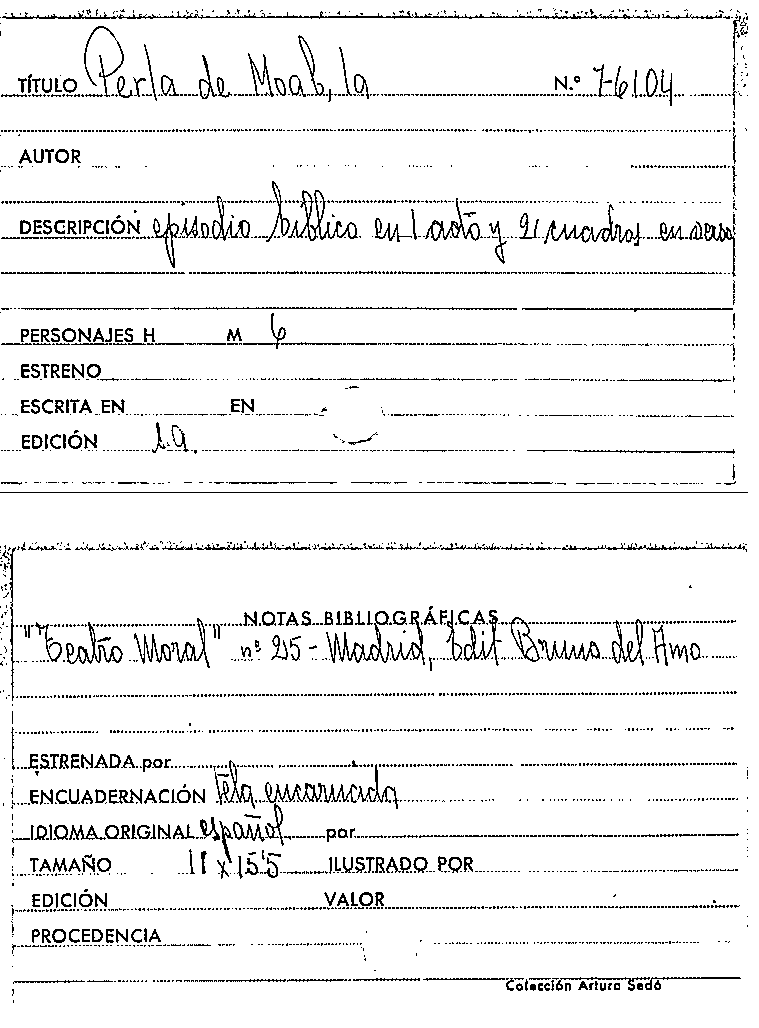 TÍTULO Perla de Moab, la N.º 7-6104
AUTOR
DESCRIPCIÓN episodio bíblico en 1 acto y 2 cuadros en verso
PERSONAJES H M 6
ESTRENO
ESCRITA EN EN
EDICIÓN 1.a.
NOTAS BIBLIOGRÁFICAS
"Teatro Moral" nº 25 - Madrid, Edit Bruno del Amo
ESTRENADA por
ENCUADERNACIÓN tela encarnada
IDIOMA ORIGINAL español por
TAMAÑO 11 x 15'5 ILUSTRADO POR
EDICIÓN VALOR
PROCEDENCIA
Colección Arturo Sedó